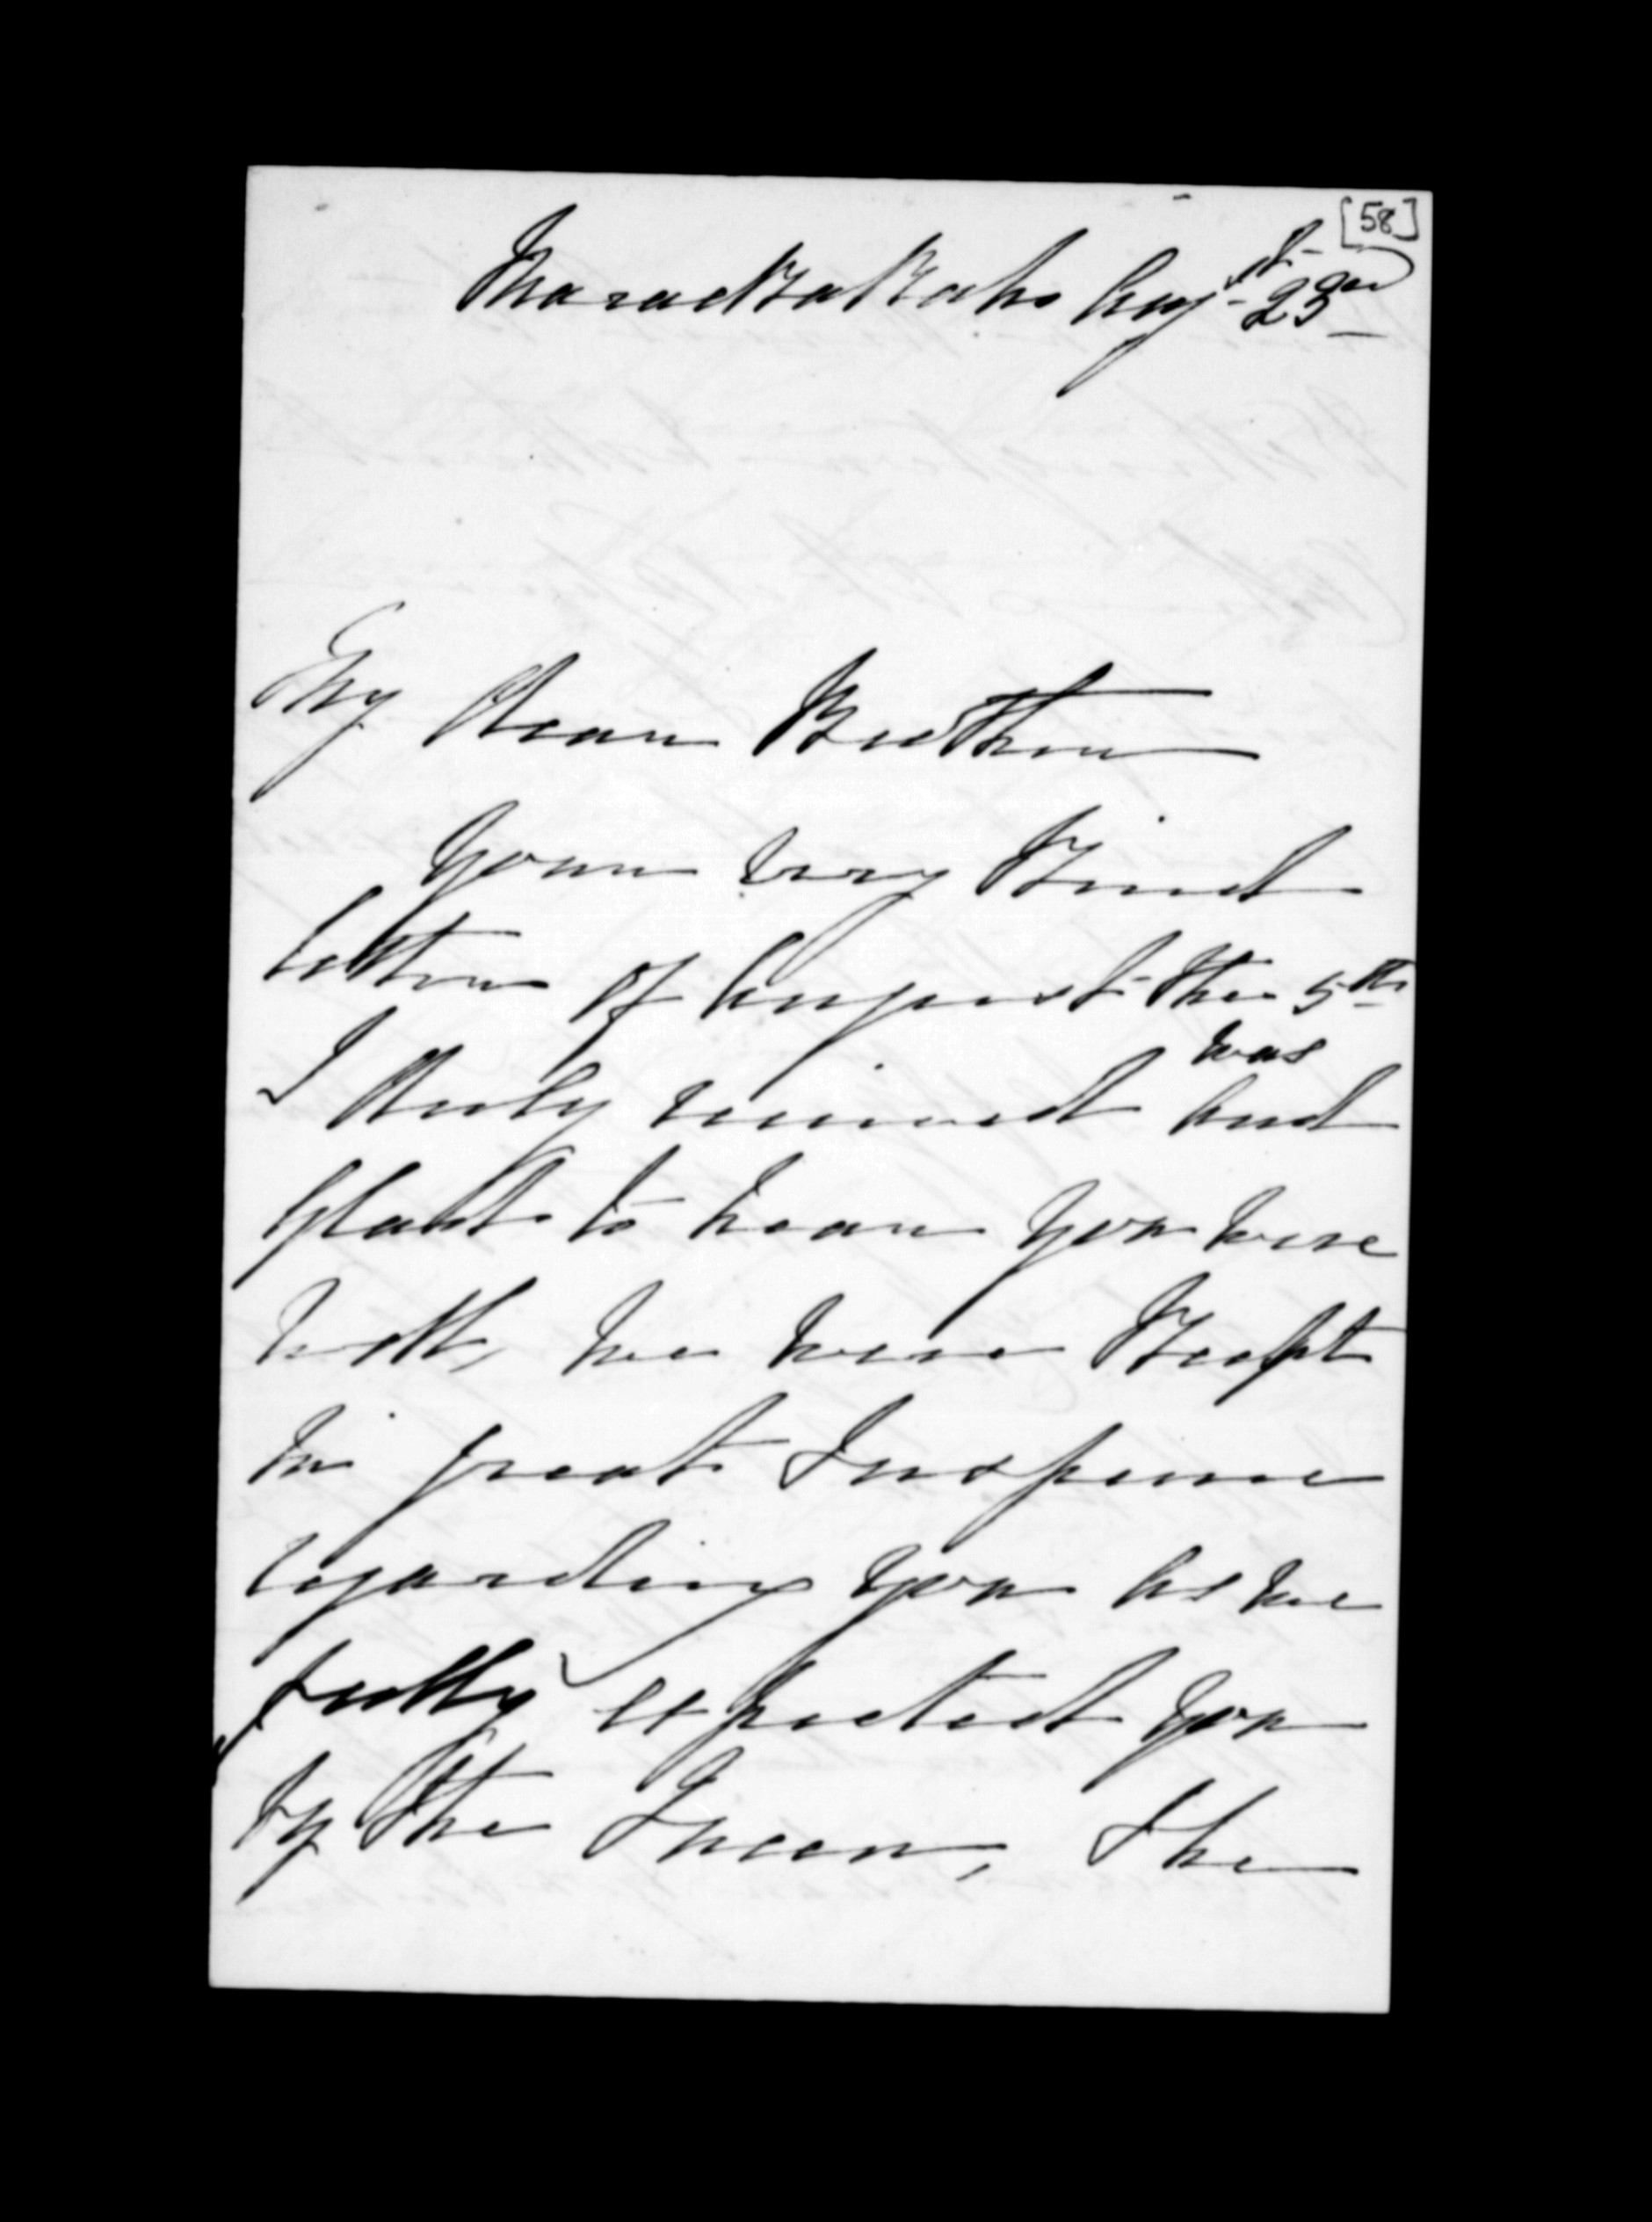 [58]
Maraekakaho Augst 23rd
My Dear Brother
Your very Kind
letter of August the 5th
was
I duly received and
glad to hear you were
well, we were Keept
in great Suspense
regarding you as we
fully expected you
by the Queen, the